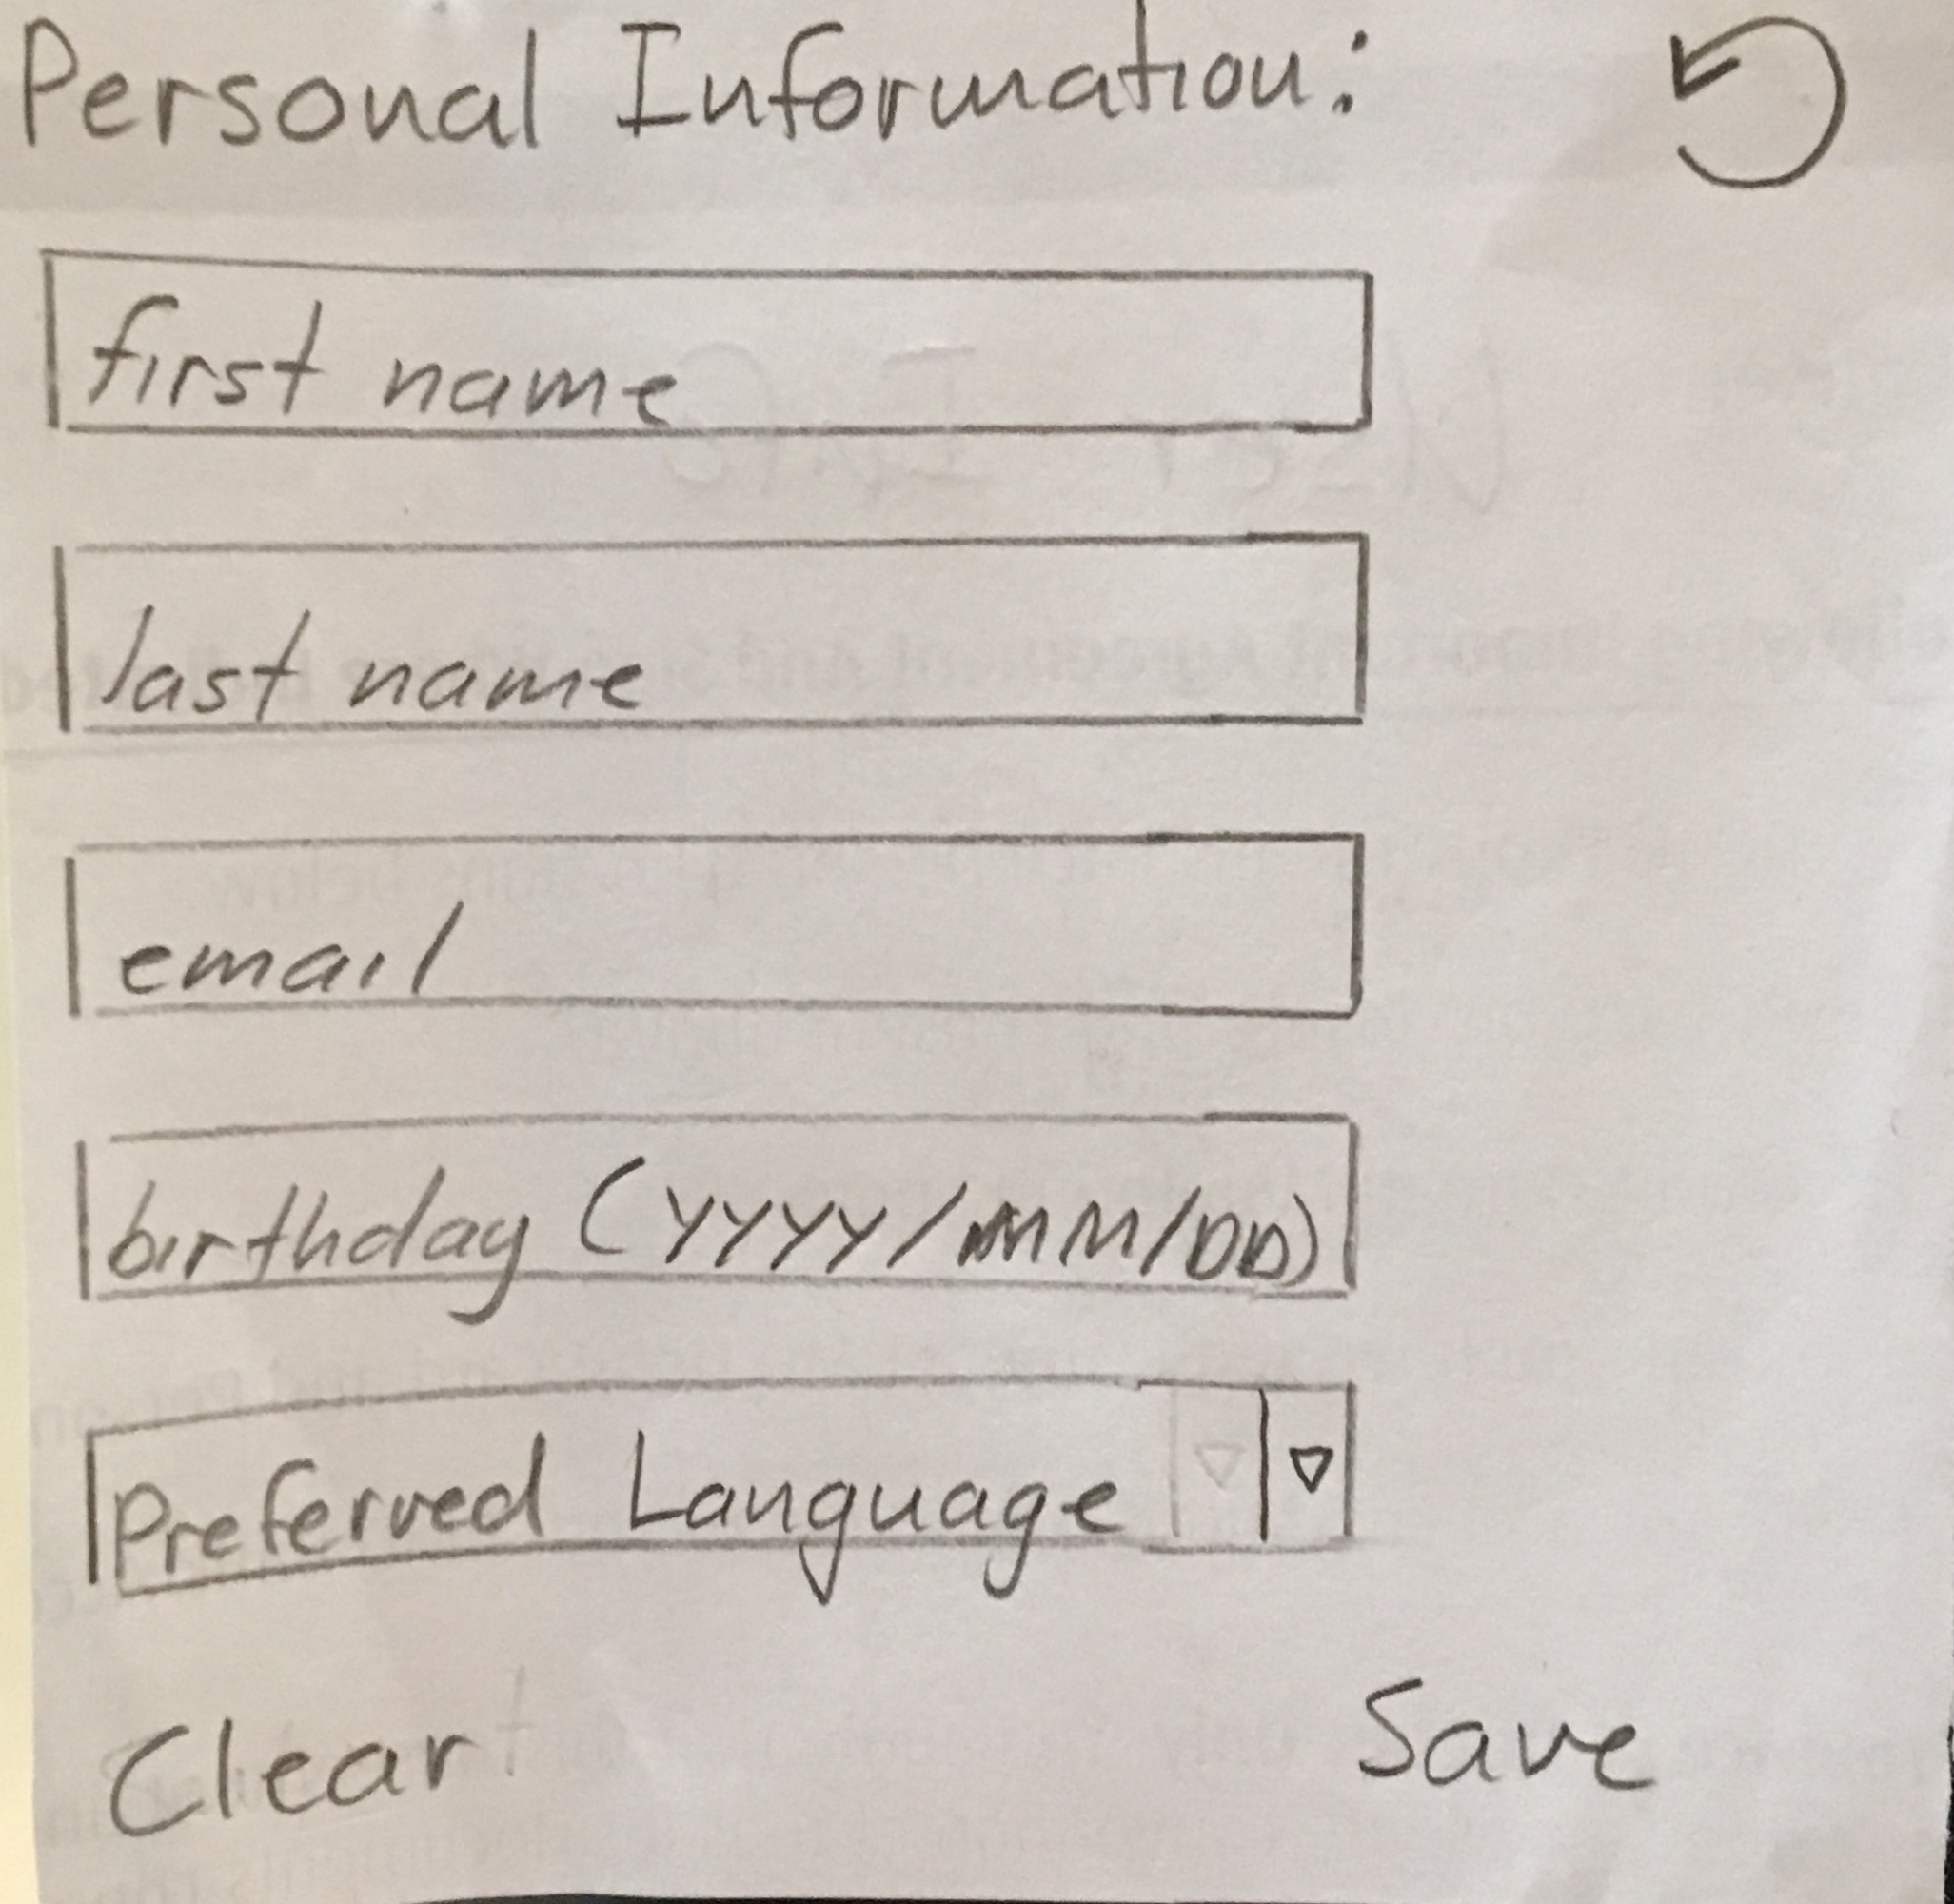 Personal Information:
first name
last name
email
birthday (YYYY/MM/DD)
Preferred Language
Clear
Save